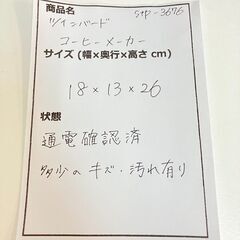 商品名 stp-3676
ツインバード
コーヒーメーカー
サイズ (幅×奥行×高さ cm)
18×13×26
状態
通電確認済
多少のキズ・汚れ有り